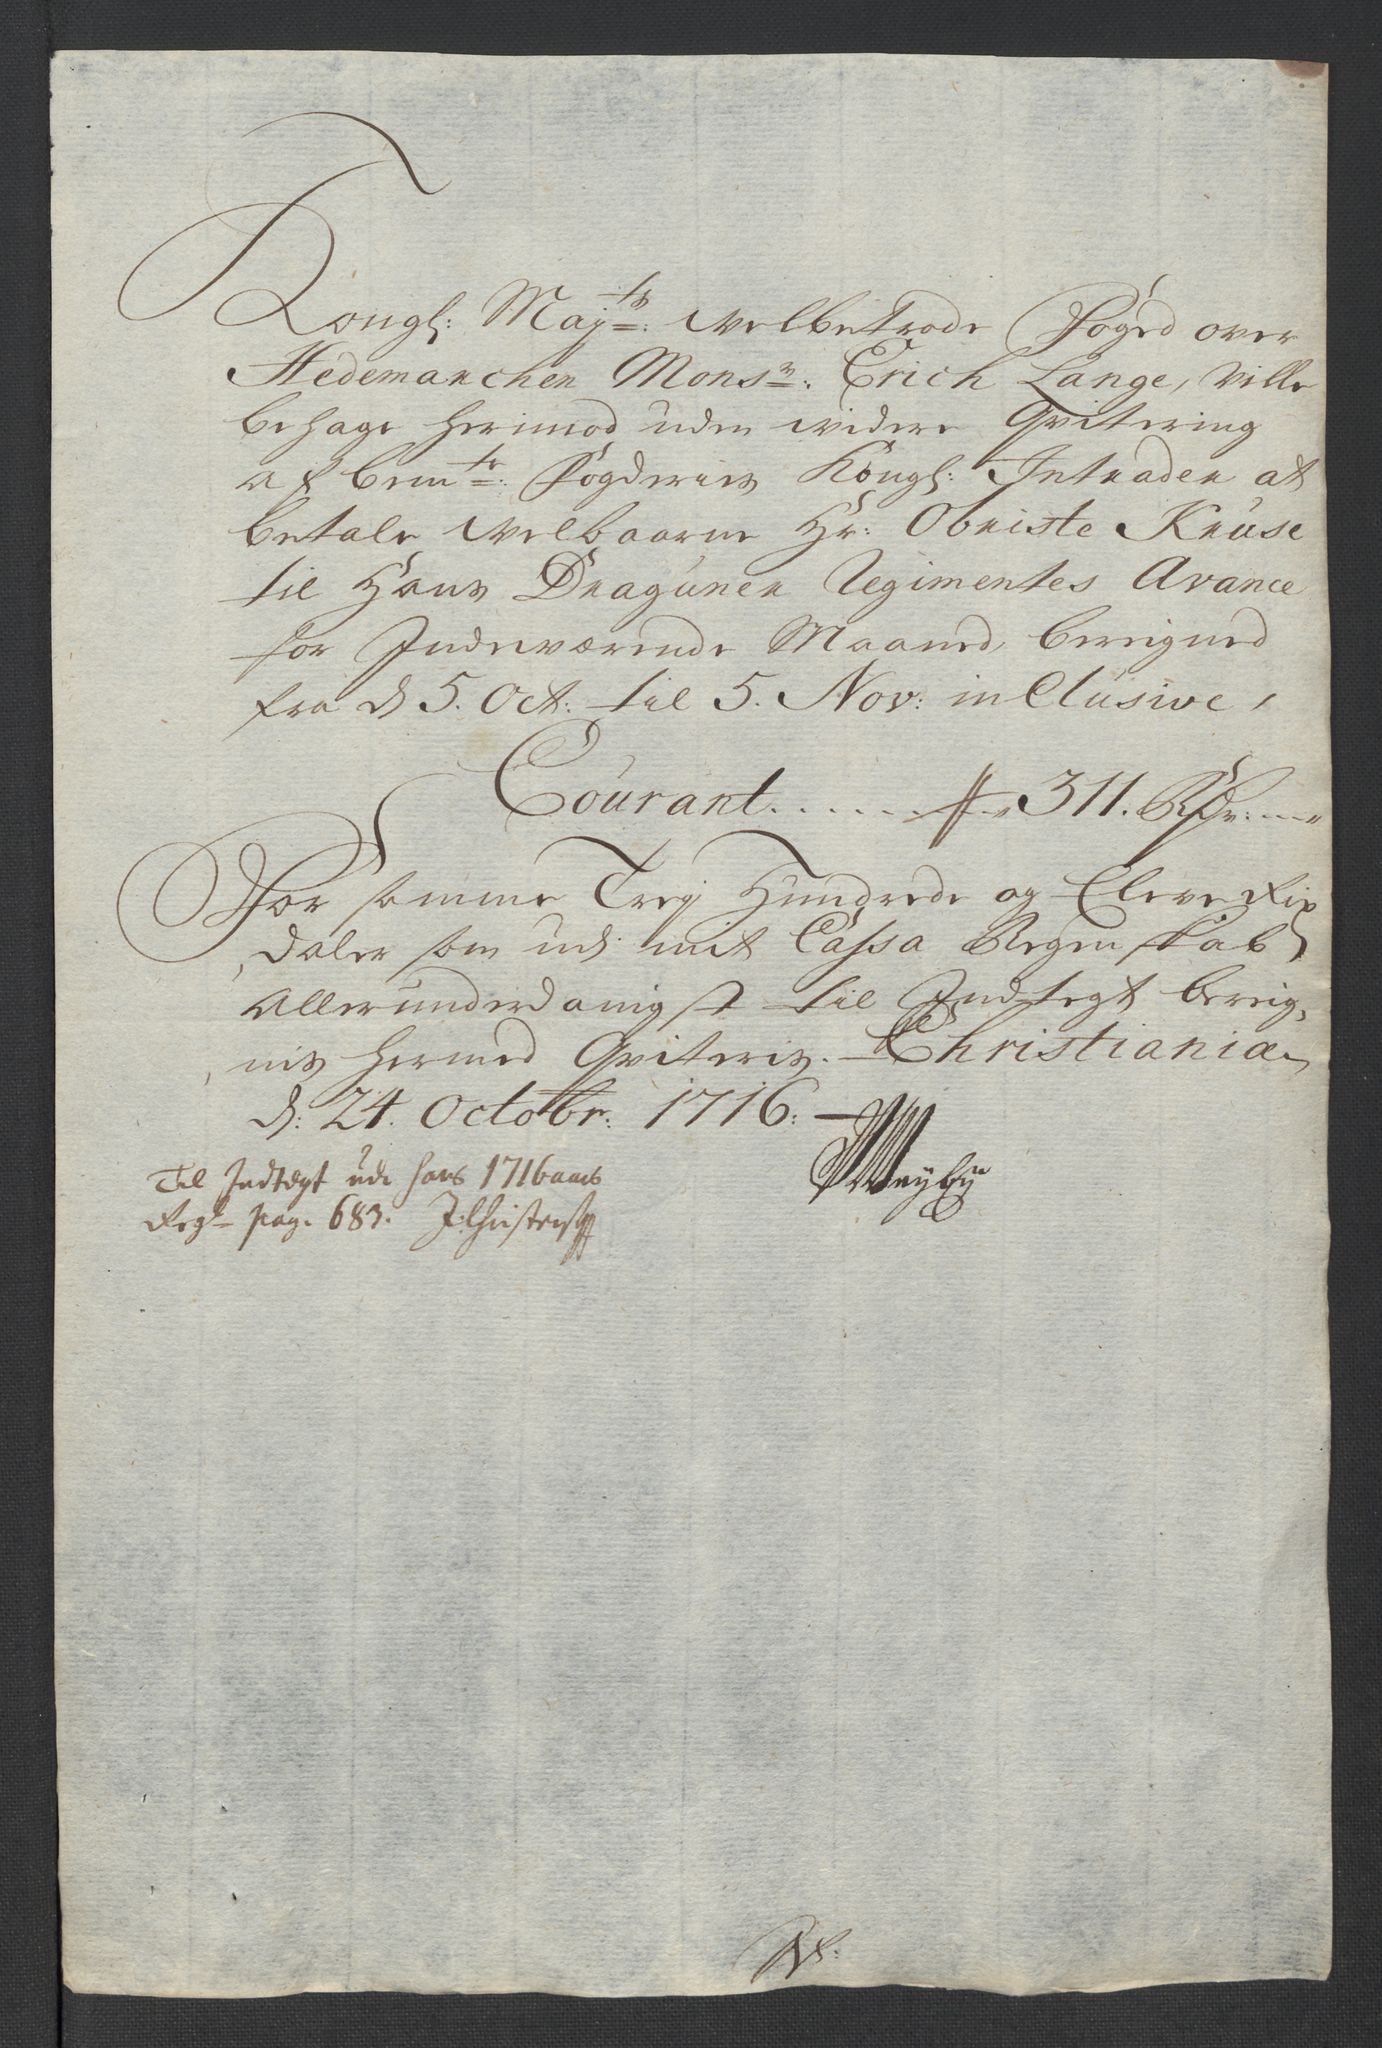 Kongl: Maj:ts velbetrode Foged over
Hedemarchen Monsr: Erich Lange, ville
behage herimod uden videre Qvitering
af bemte: Fogderies Kongl: Intrader at
betale velbaarne Hr: Obriste Kruse
til Hans Draguner Regimentes Avance
for Indeværende Maaned, bereigned
fra d 5. Oct: til 5. Nov: inclusive,
Courant . . . . . . 311. Rdr:
For somme Trej Hundrede og Eleve Rix
daler som udj mit Cassa Regenskab
Allerunderdanigst til Indtegt bereig,
nis hermed Qviteris. Christiania
d: 24. Octobr: 1716:
Til Indtægt udi hans 1716 aars
Regs pag. 683. J: Christensen